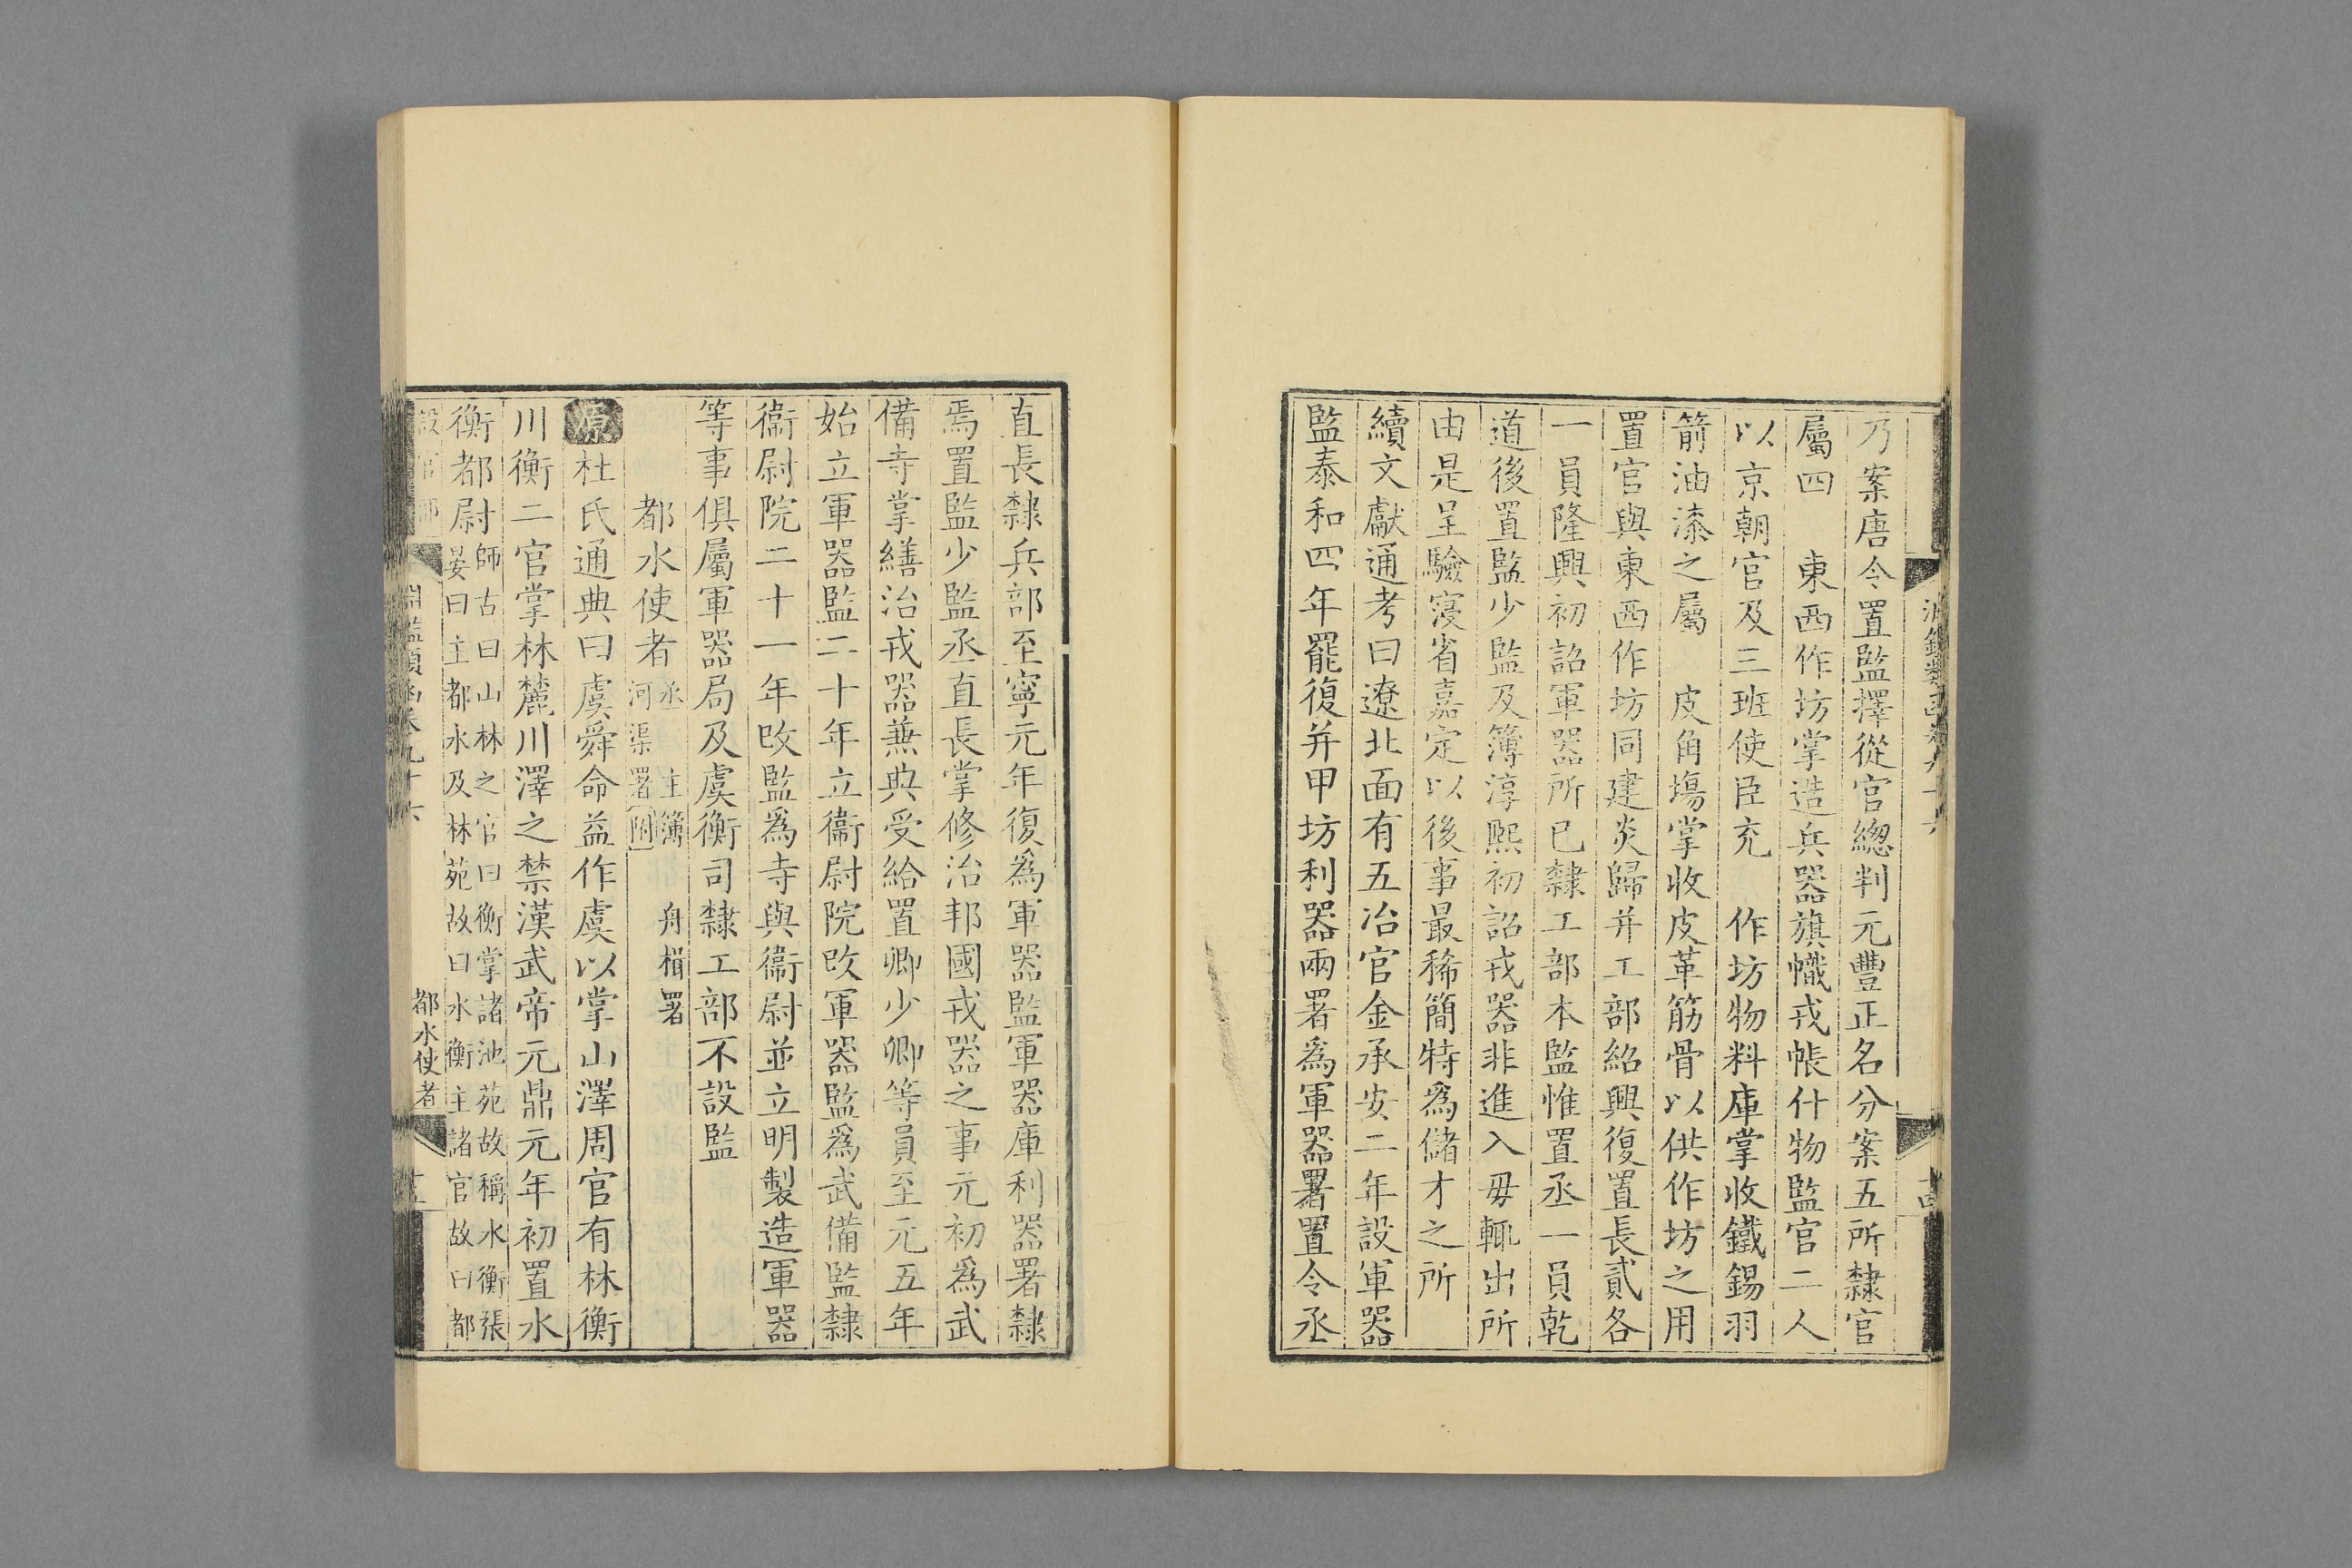 乃案唐令置監擇從官緫判元豐正名分案五所隸官
屬四　東西作坊掌造兵器旗幟戎帳什物監官二人
以京朝官及三班使臣充　作坊物料庫掌收鐵錫羽
箭油漆之屬　皮角塲掌收皮革筋骨以供作坊之用
置官與東西作坊同建炎歸并工部紹興復置長貳各
一員隆興初詔軍器所已隸工部本監惟置丞一員乾
道後置監少監及簿淳熙初詔戎器非進入毋輒出所
由是呈驗寖省嘉定以後事最稀簡特爲儲才之所
續文獻通考曰遼北面有五冶官金承安二年設軍器
監泰和四年罷復并甲坊利器兩署爲軍器署置令丞
直長隸兵部至寧元年復爲軍器監軍器庫利器署隸
焉置監少監丞直長掌修治邦國戎器之事元初爲武
備寺掌繕治戎器兼典受給置卿少卿等員至元五年
始立軍器監二十年立衞尉院改軍器監爲武備監隸
衞尉院二十一年改監爲寺與衞尉並立明製造軍器
等事俱屬軍器局及虞衡司隸工部不設監
都水使者 丞　主簿　舟楫署
河渠署附
原杜氏通典曰虞舜命益作虞以掌山澤周官有林衡
川衡二官掌林麓川澤之禁漢武帝元鼎元年初置水
衡都尉 師古曰山林之官曰衡掌諸池苑故稱水衡張
晏曰主都水及林苑故曰水衡主諸官故曰都
設官部
淵鑑類函卷九十六
都水使者